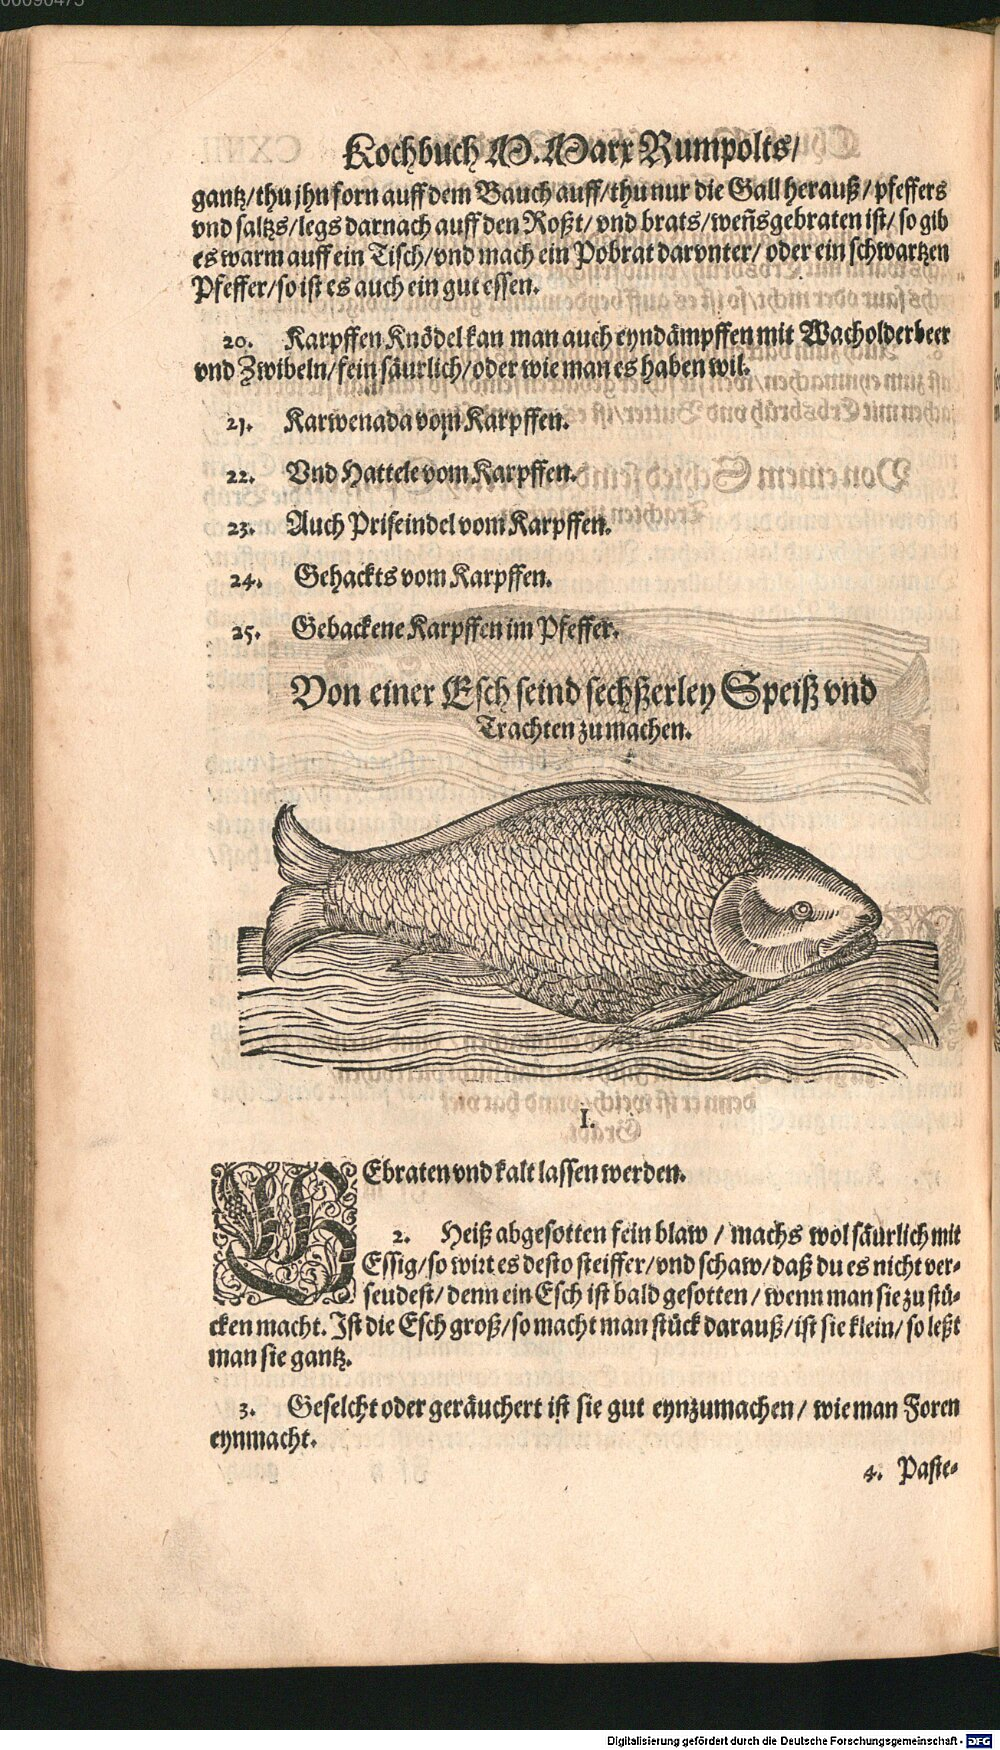 Kochbuch M. Marx Rumpolts/
gantz/thu jhn forn auff dem Bauch auff/thu nur die Gall herauß/pfeffers
vnd saltzs/legs darnach auff den Roßt/vnd brats/weñs gebraten ist/so gib
es warm auff ein Tisch/vnd mach ein Pobrat darvnter/oder ein schwartzen
Pfeffer/so ist es auch ein gut essen.
20. Karpffen Knödel kan man auch eyndämpffen mit Wacholderbeer
vnd Zwibeln/fein säurlich/oder wie man es haben wil.
21. Karwenada vom Karpffen.
22. Vnd Hattele vom Karpffen.
23. Auch Priseindel vom Karpffen.
24. Gehackts vom Karpffen.
25. Gebackene Karpffen im Pfeffer.
Von einer Esch seind sechßerley Speiß vnd
Trachten zu machen.
I.
GEbraten vnd kalt lassen werden.
2. Heiß abgesotten fein blaw / machs wol säurlich mit
Essig/so wirt es desto steiffer/vnd schaw/daß du es nicht ver-
seudest/denn ein Esch ist bald gesotten/wenn man sie zu stü-
cken macht. Ist die Esch groß/so macht man stück darauß/ist sie klein/so leßt
man sie gantz.
3. Geselcht oder geräuchert ist sie gut eynzumachen/ wie man Foren
eynmacht.
4. Paste-
Digitalisierung gefördert durch die Deutsche Forschungsgemeinschaft - DFG